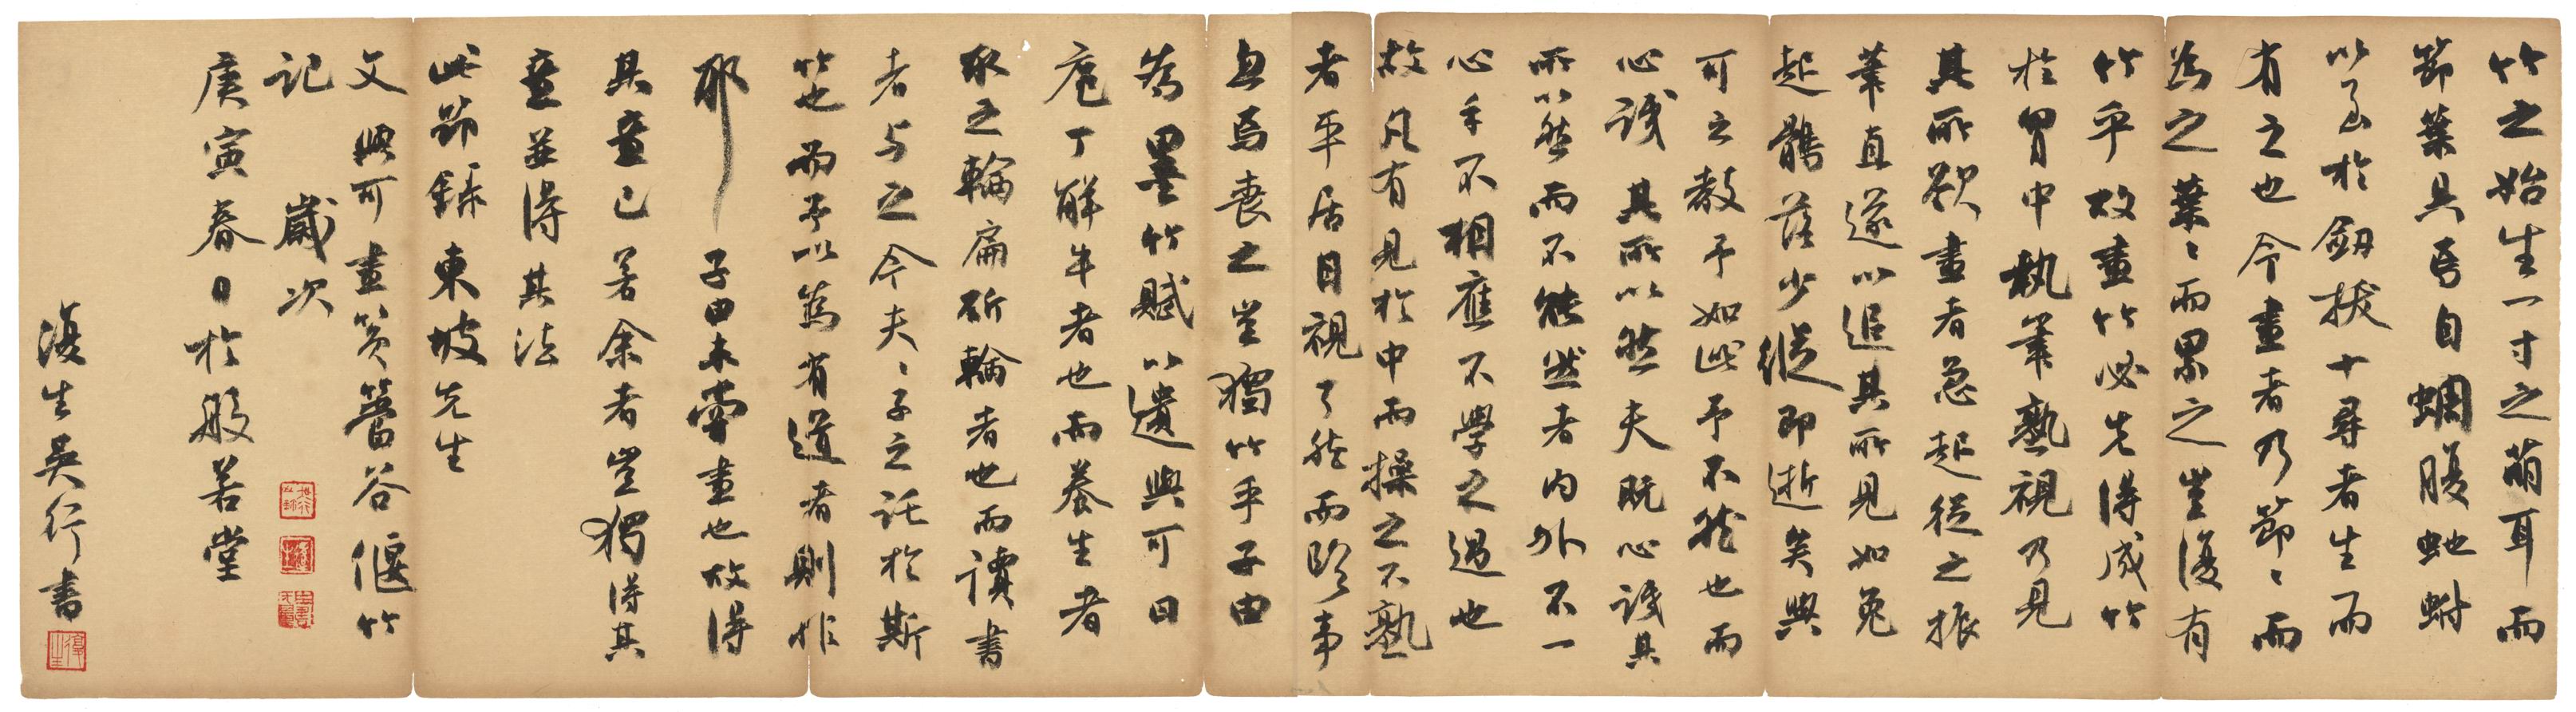 竹之始生一寸之萌耳而
節葉具焉自蜩腹蛇蚹
以至於劒拔十尋者生而
有之也今畫者乃節〻而
為之葉〻而累之豈復有
竹乎故畫竹必先得成竹
於胷中執筆熟視乃見
其所欲畫者急起從之振
筆直遂以追其所見如兔
起鶻落少縱即逝矣與
可之教予如此予不能也而
心識其所以然夫既心識其
所以然而不能然者內外不一
心手不相應不學之過也
故凡有見於中而操之不熟
者平居自視了然而臨事
忽焉喪之豈獨竹乎子由
為墨竹賦以遺與可曰
庖丁解牛者也而養生者
取之輪扁斫輪者也而讀書
者与之今夫〻子之託於斯
竹也而予以為有道者則非
耶子由未嘗畫也故得
其意已若余者豈獨得其
意並得其法
此節錄東坡先生
文與可畫篔簹谷偃竹
記 歲次
庚寅春日於般若堂
復生吳行書
復生